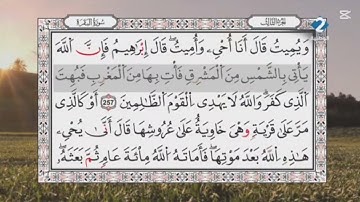 سورة البقرة
الجزء الثالث
وَيُمِيتُ قَالَ أَنَا۠ أُحْىِۦ وَأُمِيتُ ۖ قَالَ إِبْرَٰهِيمُ فَإِنَّ ٱللَّهَ
يَأْتِى بِالشَّمْسِ مِنَ ٱلْمَشْرِقِ فَأْتِ بِهَا مِنَ ٱلْمَغْرِبِ فَبُهِتَ
ٱلَّذِى كَفَرَ ۗ وَٱللَّهُ لَا يَهْدِى ٱلْقَوْمَ ٱلظَّٰلِمِينَ 257 أَوْ كَٱلَّذِى
مَرَّ عَلَىٰ قَرْيَةٍ وَهِىَ خَاوِيَةٌ عَلَىٰ عُرُوشِهَا قَالَ أَنَّىٰ يُحْىِۦ
هَٰذِهِ ٱللَّهُ بَعْدَ مَوْتِهَا ۖ فَأَمَاتَهُ ٱللَّهُ مِا۟ئَةَ عَامٍ ثُمَّ بَعَثَهُۥ ۖ